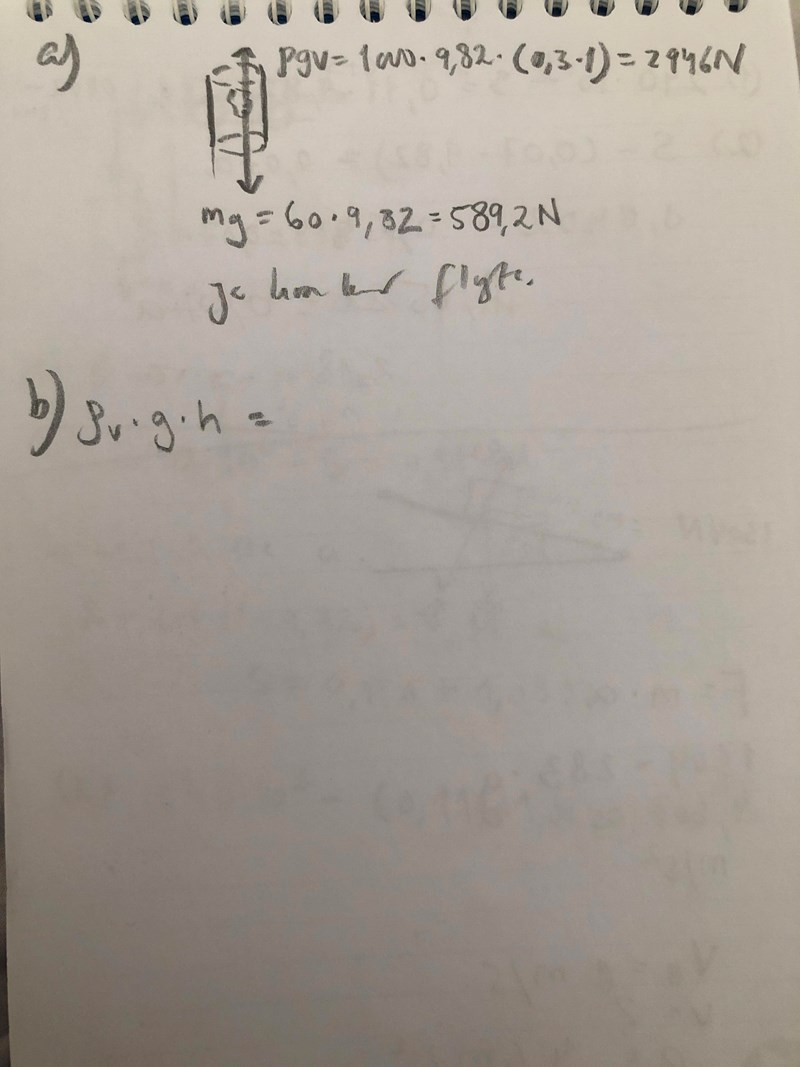 a)
ρgv = 1000 · 9,82 · (0,3 · 1) = 2946N
mg = 60 · 9,82 = 589,2N
ja hon kan flyta.
b) ρv · g · h =